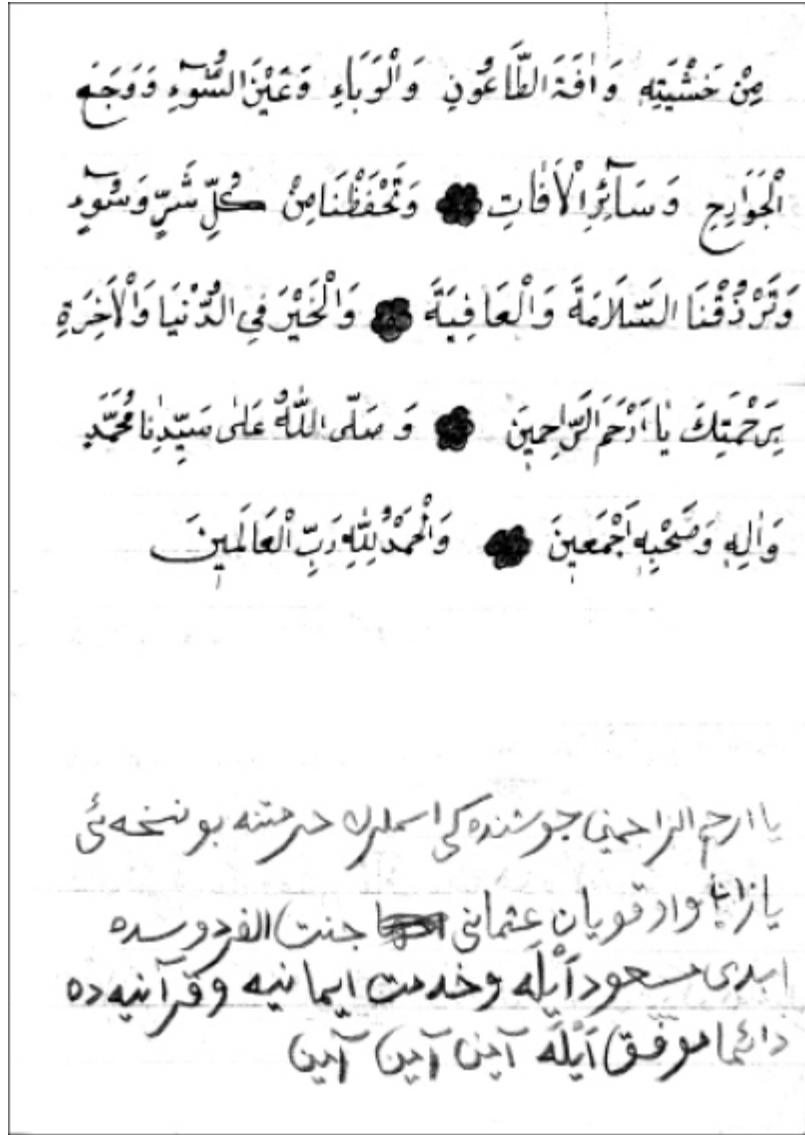 مِنْ خَشْيَتِهِ وَاٰفَةَ الطَّاعُونِ وَالْوَبَاءِ وَعَيْنَ السُّوٓءِ وَوَجَعَ
الْجَوَارِحِ وَسَآئِرِ الْاَفَاتِ ❁ وَتَحْفَظْنَا مِنْ كُلِّ شَرٍّ وَسُوٓءٍ
وَتَرْزُقْنَا السَّلَامَةَ وَالْعَافِيَةَ ❁ وَالْخَيْرَ فِى الدُّنْيَا وَالْاٰخِرَةِ
بِرَحْمَتِكَ يَٓا اَرْحَمَ الرَّاحِمِينَ ❁ وَ صَلَّى اللّٰهُ عَلٰى سَيِّدِنَا مُحَمَّدٍ
وَاٰلِهِ وَصَحْبِهِ اَجْمَعِينَ ❁ وَالْحَمْدُ لِلّٰهِ رَبِّ الْعَالَمِينَ
يا ارحم الراحمين جوشنده كى اسملرك حرمتنه بو نسخه ئى
يازان و اوقويان عثمانى جنت الفردوسده
ابدى مسعود اَيْلَه و خدمت ايمانيه و قرآنيه ده
دائما موفّق اَيْلَه آمين آمين آمين